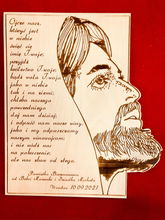 Ojcze nasz,
któryś jest
w niebie
święć się
imię Twoje;
przyjdź
królestwo Twoje;
bądź wola Twoja
jako w niebie
tak i na ziemi;
chleba naszego
powszedniego
daj nam dzisiaj;
i odpuść nam nasze winy,
jako i my odpuszczamy
naszym winowajcom;
i nie wódź nas
na pokuszenie;
ale nas zbaw ode złego.
10.09.2021